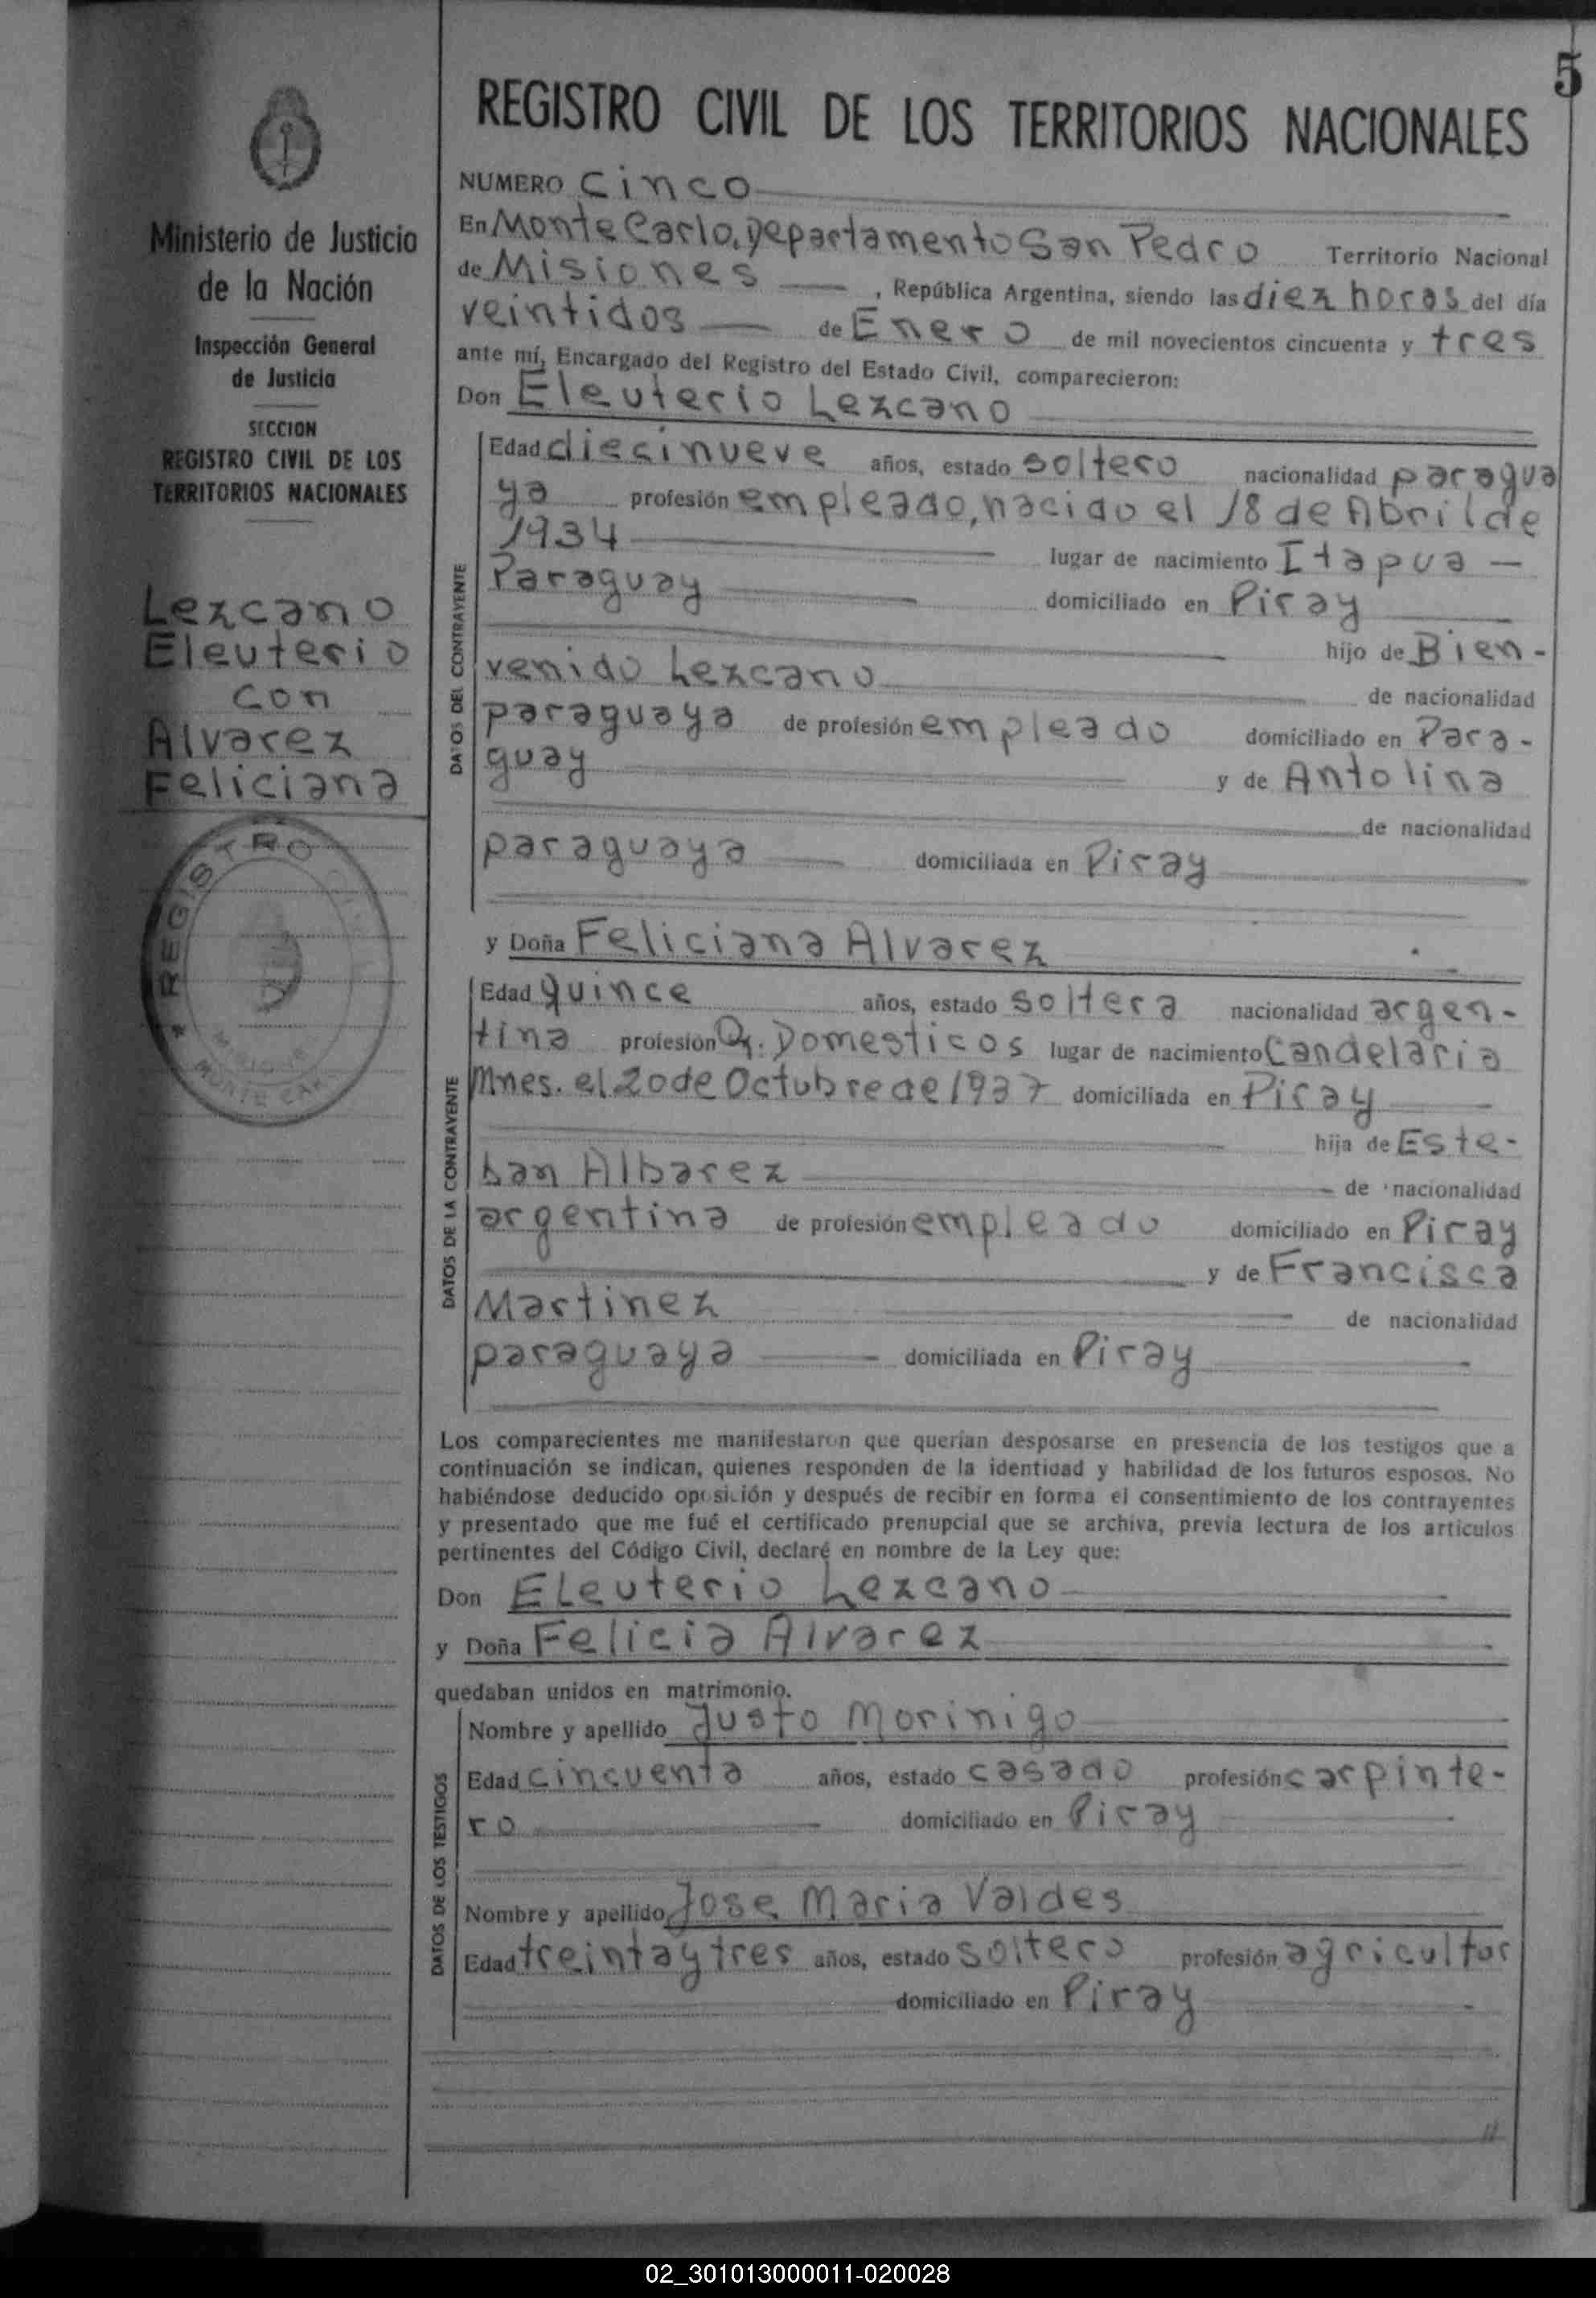 5
REGISTRO CIVIL DE LOS TERRITORIOS NACIONALES
Ministerio de Justicia
de la Nación
Inspección General
de Justicia
SECCION
REGISTRO CIVIL DE LOS
TERRITORIOS NACIONALES
Lezcano
Eleuterio
con
Alvarez
Feliciana
REGISTRO CIVIL
MISIONES
MONTE CAR
NUMERO Cinco
En Monte Carlo, Departamento San Pedro Territorio Nacional
de Misiones , República Argentina, siendo las diez horas del día
veintidos de Enero de mil novecientos cincuenta y tres
ante mí, Encargado del Registro del Estado Civil, comparecieron:
Don Eleuterio Lezcano
DATOS DEL CONTRAYENTE
Edad diecinueve años, estado soltero nacionalidad paragua
ya profesión empleado, nacido el 18 de Abril de
1934 lugar de nacimiento Itapua -
Paraguay domiciliado en Piray
hijo de Bien-
venido Lezcano de nacionalidad
paraguaya de profesión empleado domiciliado en Para-
guay y de Antolina
de nacionalidad
paraguaya domiciliada en Piray
y Doña Feliciana Alvarez
DATOS DE LA CONTRAYENTE
Edad quince años, estado soltera nacionalidad argen-
tina profesión Q. Domesticos lugar de nacimiento Candelaria
Mnes. el 20 de Octubre de 1937 domiciliada en Piray
hija de Este-
ban Albarez de nacionalidad
argentina de profesión empleado domiciliado en Piray
y de Francisca
Martinez de nacionalidad
paraguaya domiciliada en Piray
Los comparecientes me manifestaron que querían desposarse en presencia de los testigos que a
continuación se indican, quienes responden de la identidad y habilidad de los futuros esposos. No
habiéndose deducido oposición y después de recibir en forma el consentimiento de los contrayentes
y presentado que me fué el certificado prenupcial que se archiva, previa lectura de los artículos
pertinentes del Código Civil, declaré en nombre de la Ley que:
Don Eleuterio Lezcano
y Doña Felicia Alvarez
quedaban unidos en matrimonio.
DATOS DE LOS TESTIGOS
Nombre y apellido Justo Morinigo
Edad cincuenta años, estado casado profesión carpinte-
ro domiciliado en Piray
Nombre y apellido Jose Maria Valdes
Edad treinta y tres años, estado soltero profesión agricultor
domiciliado en Piray
02_301013000011-020028